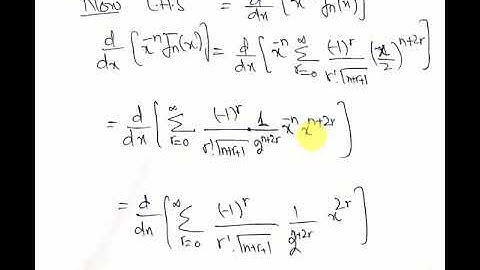 Now L.H.S = d/dx [x^-n Jn(x)]
d/dx [x^-n Jn(x)] = d/dx [x^-n ∑_{r=0}^∞ (-1)^r / r! √n+r+1 (x/2)^{n+2r}]
= d/dx [∑_{r=0}^∞ (-1)^r / r! √n+r+1 · 1 / 2^{n+2r} x^-n x^{n+2r}]
= d/dn [∑_{r=0}^∞ (-1)^r / r! √n+r+1 1 / 2^{n+2r} x^{2r}]